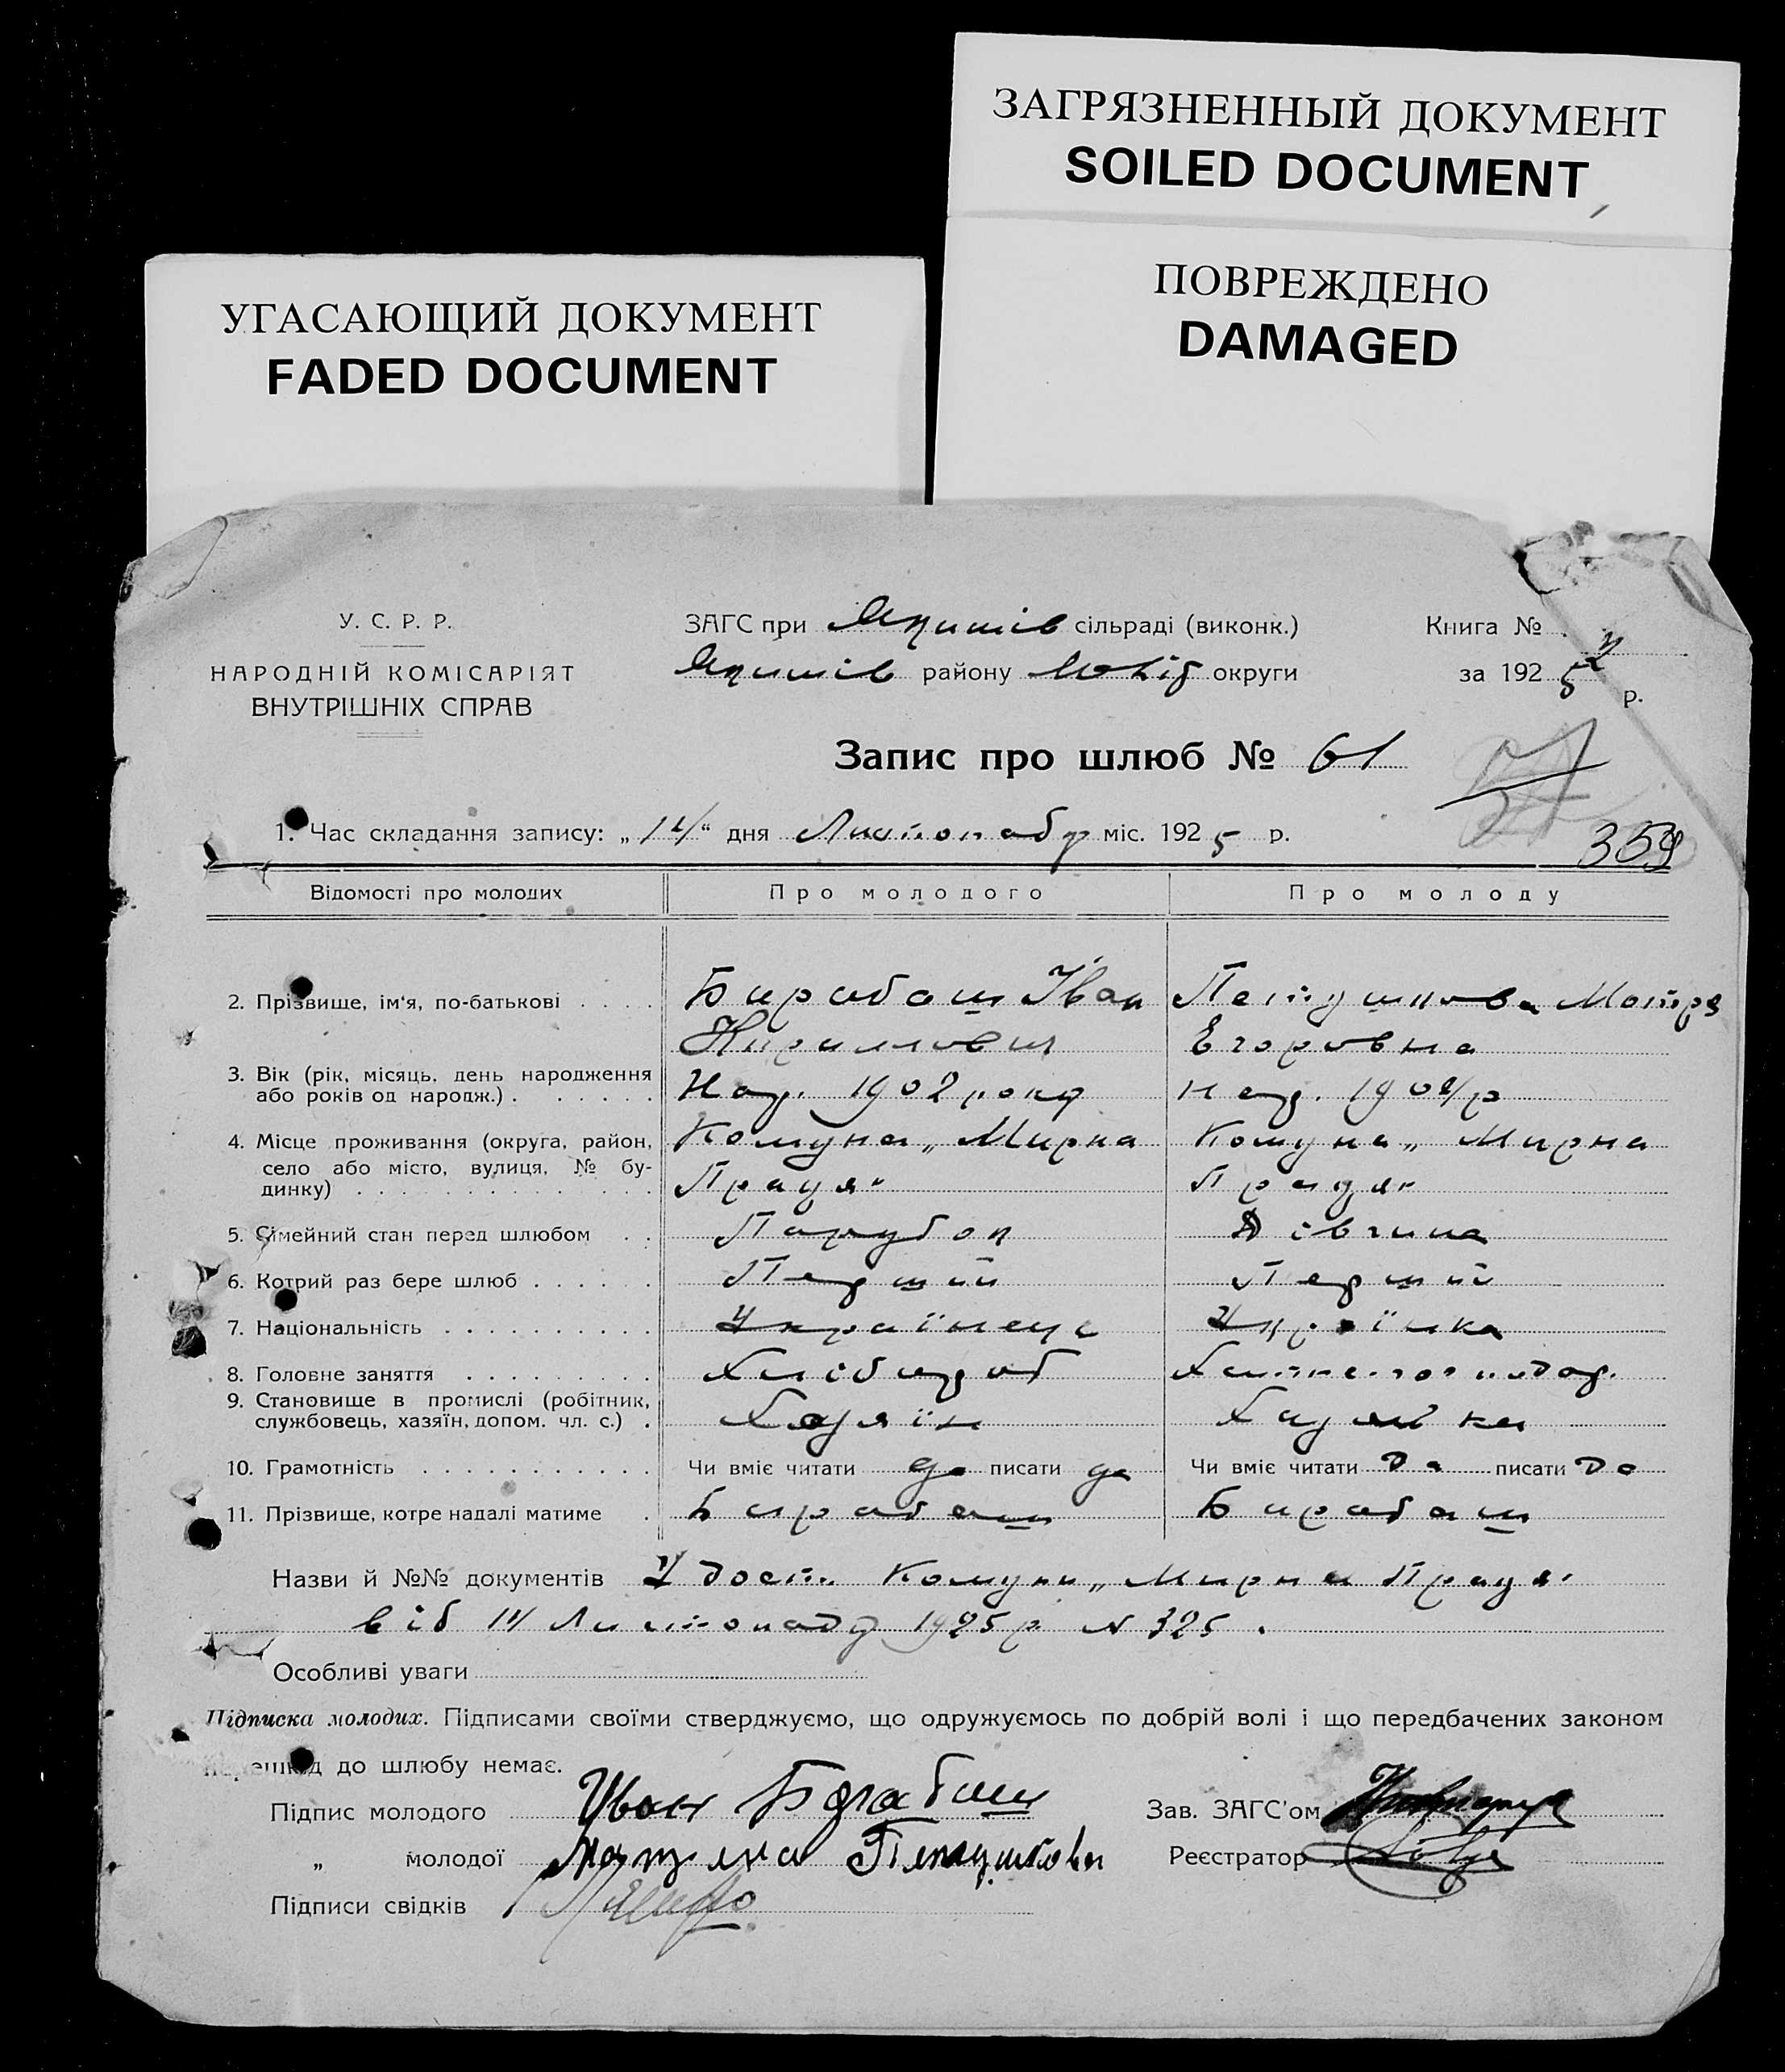 ЗАГРЯЗНЕННЫЙ ДОКУМЕНТ
SOILED DOCUMENT
ПОВРЕЖДЕНО
DAMAGED
УГАСАЮЩИЙ ДОКУМЕНТ
FADED DOCUMENT
У. С. Р. Р.
НАРОДНІЙ КОМІСАРІЯТ
ВНУТРІШНІХ СПРАВ
ЗАГС при Яришів сільраді (виконк.)
Яришів району Могів округи
Книга №
за 1925 р.
Запис про шлюб № 61
359
1. Час складання запису: „14“ дня Листопаду міс. 1925 р.
Відомості про молодих Про молодого Про молоду
2. Прізвище, ім'я, по-батькові . . . . Барабаш Іван Петушкова Мотря
Кирилович Егоровна
3. Вік (рік, місяць, день народження
або років од народж.) . . . . . . Нар. 1902 року нар. 1904 р
4. Місце проживання (округа, район, Комуна „Мирна Комуна „Мирна
село або місто, вулиця, № бу-
динку) . . . . . . . . . . . . . . Праця" Праця"
5. Сімейний стан перед шлюбом . . Парубок Дівчина
6. Котрий раз бере шлюб . . . . . . Перший Перший
7. Національність . . . . . . . . . . Українець Українка
8. Головне заняття . . . . . . . . . Хлібороб
9. Становище в промислі (робітник,
службовець, хазяїн, допом. чл. с.) . Хазяїн Хазяйка
10. Грамотність . . . . . . . . . . . Чи вміє читати да писати да Чи вміє читати да писати да
11. Прізвище, котре надалі матиме . Барабаш Барабаш
Назви й №№ документів Удост. Комуни „Мирна Праця"
від 14 Листопаду 1925 р N 325.
Особливі уваги
Підписка молодих. Підписами своїми стверджуємо, що одружуємось по добрій волі і що передбачених законом
перешкод до шлюбу немає.
Підпис молодого Иван Барабаш Зав. ЗАГС'ом
„ молодої Петушкова Реєстратор
Підписи свідків